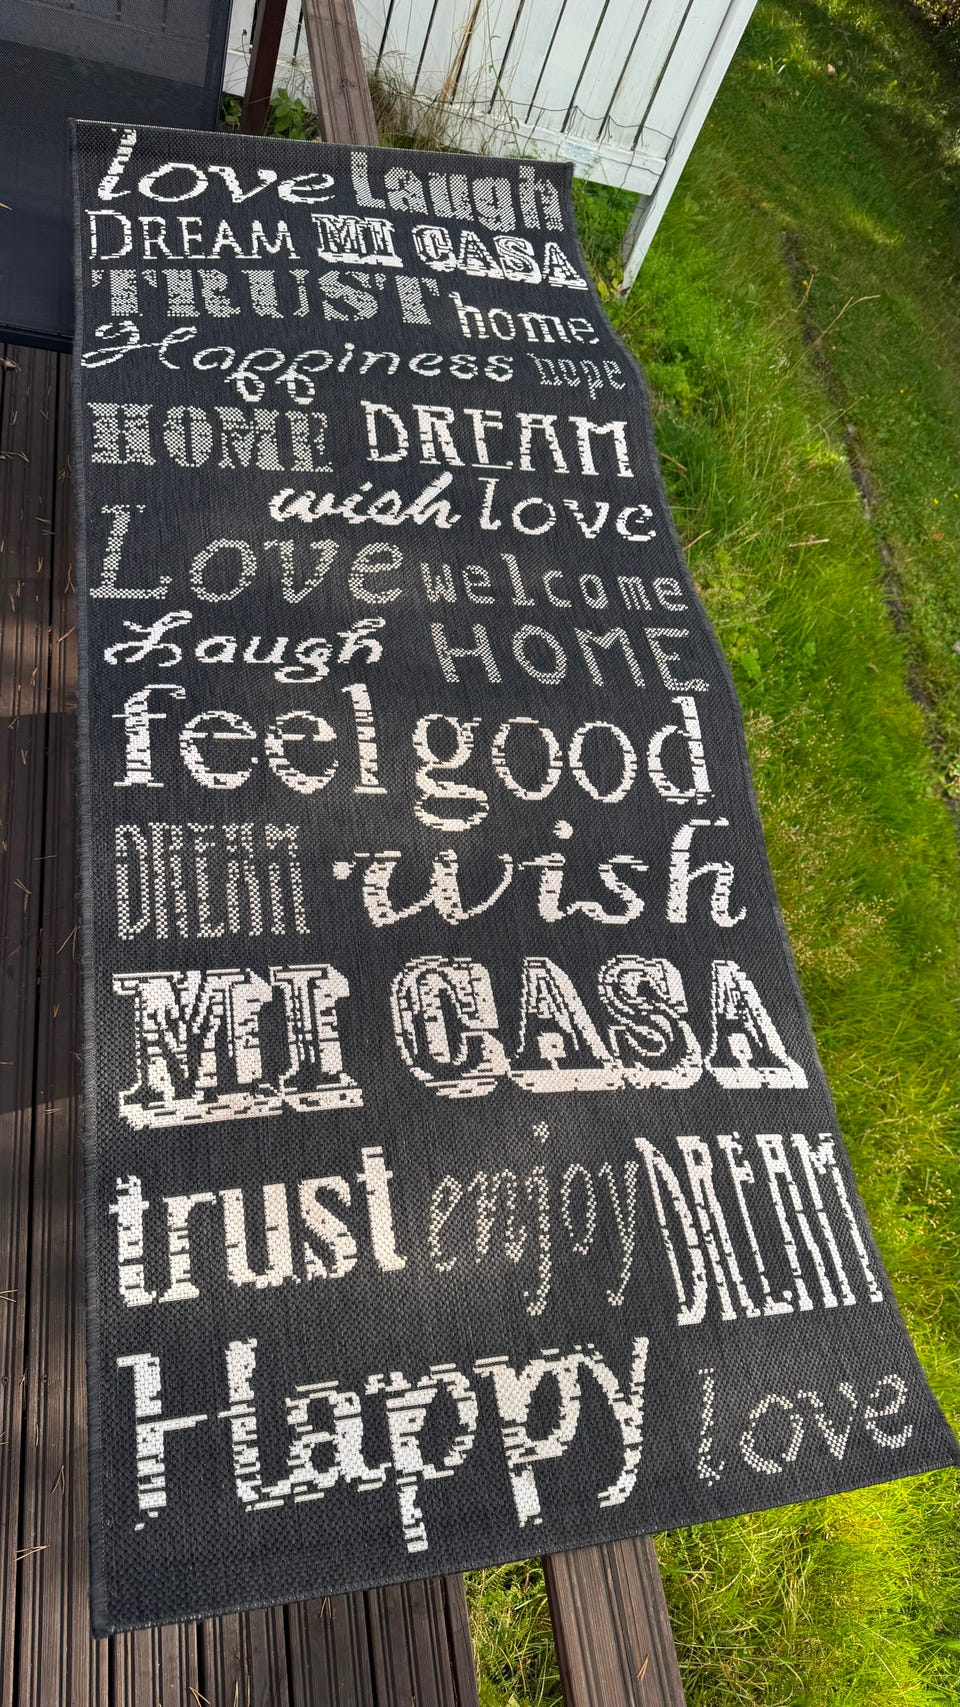 love Laugh
DREAM MI CASA
TRUST home
Happiness hope
HOME DREAM
wish love
Love welcome
Laugh HOME
feel good
DREAM wish
MI CASA
trust enjoy DREAM
Happy love